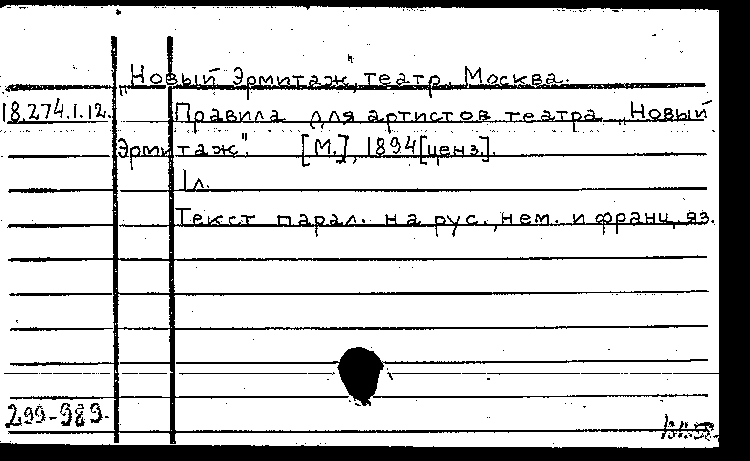 „Новый Эрмитаж", театр. Москва.
18.274.1.12.
Правила для артистов театра „Новый
Эрмитаж". [М.], 1894 [ценз].
1 л.
Текст парал. на рус., нем. и франц. яз.
299-989.